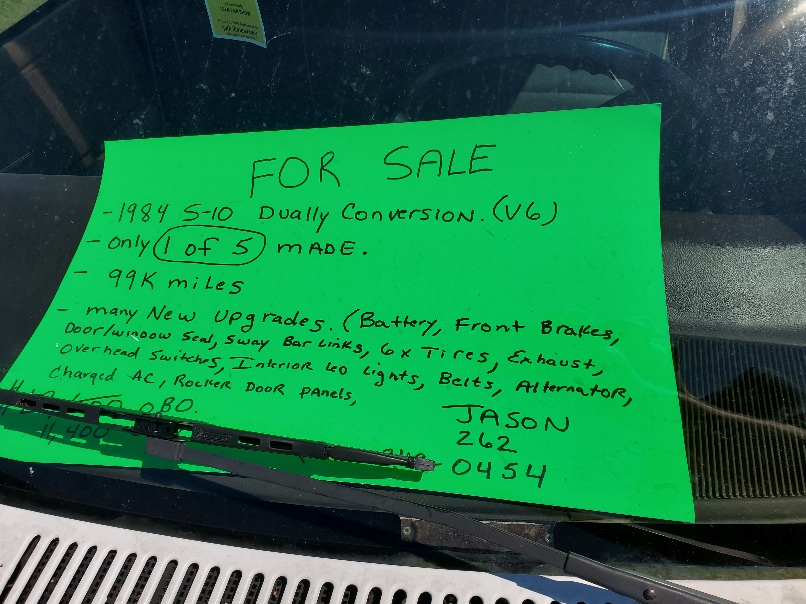 FOR SALE
- 1984 S-10 Dually Conversion. (V6)
- Only 1 of 5 MADE.
- 99K miles
- many New Upgrades. (Battery, Front Brakes,
Door/window Seal, Sway Bar Links, 6x Tires, Exhaust,
Overhead Switches, Interior LED Lights, Belts, Alternator,
Charged AC, Rocker DOOR PANELS,
OBO.
11,400
JASON
262
0454